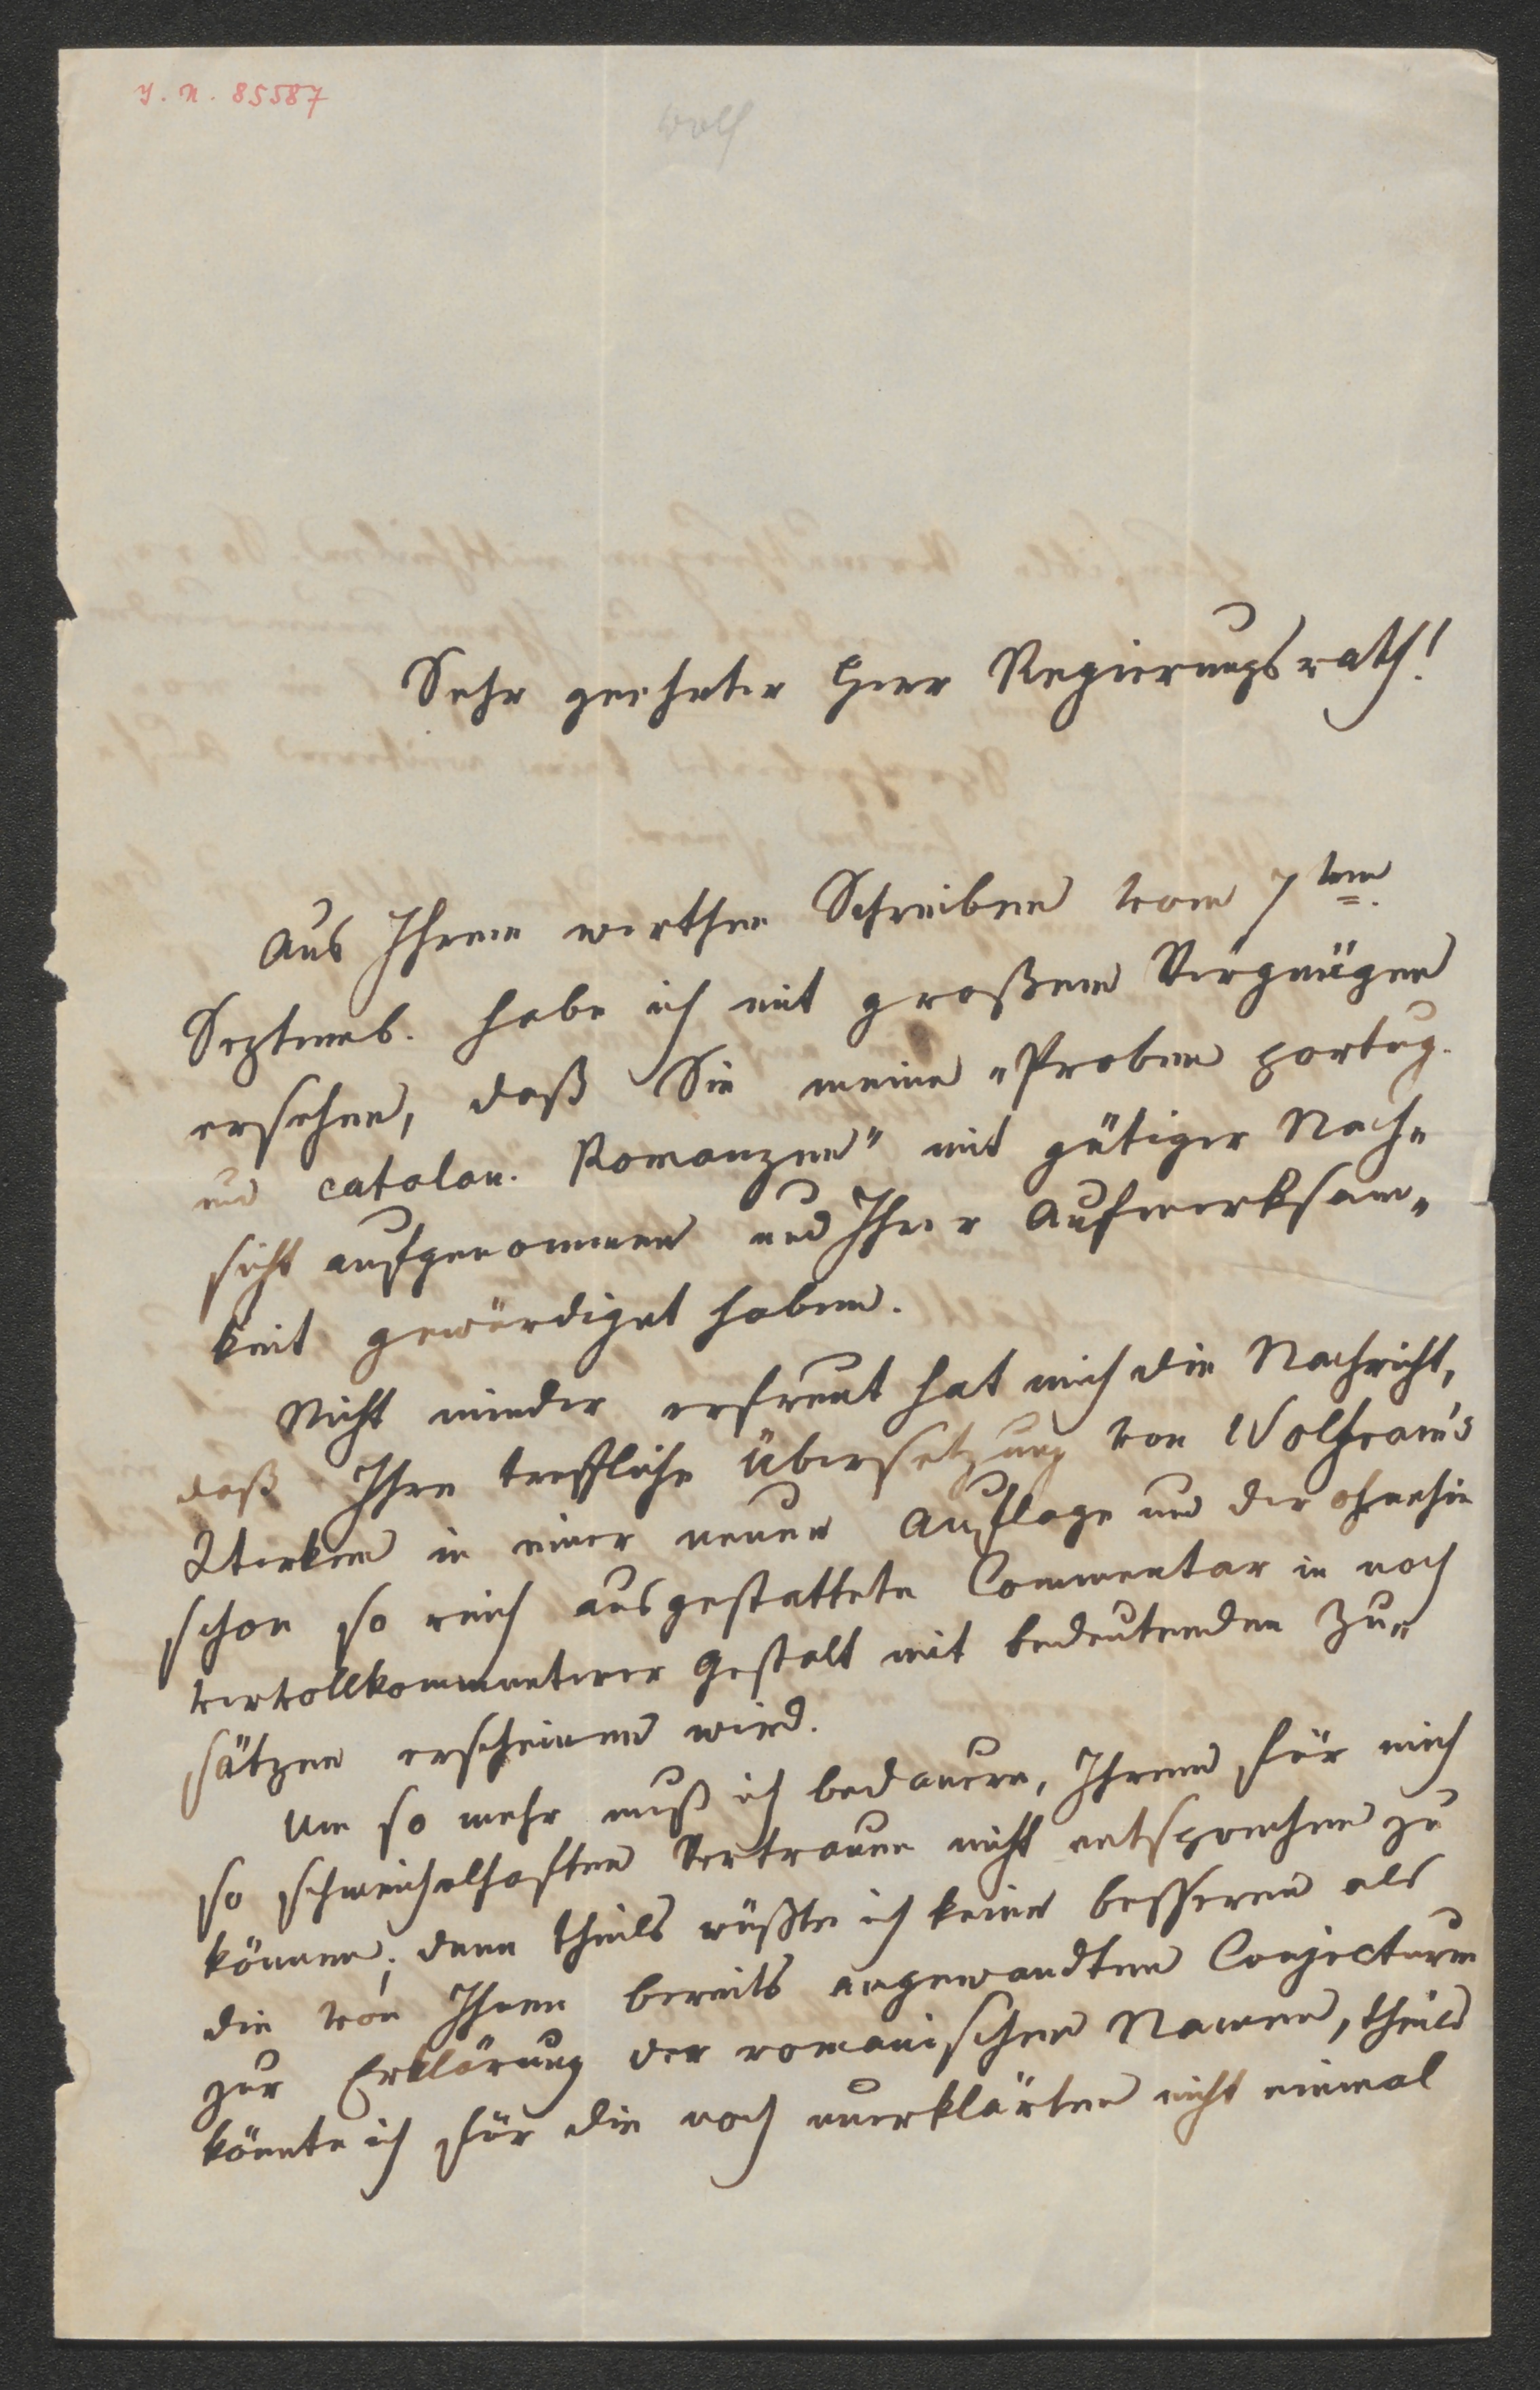 I. N. 85587
Wolf
Sehr geehrter Herr Regierungsrath!
Aus Ihrem werthen Schreiben vom 7ten
Septemb. habe ich mit großem Vergnügen
ersehen, daß Sie meine „Proben portug.
und catalan. Romanzen" mit gütiger Nach-
sicht aufgenommen und Ihrer Aufmerksam-
keit gewürdiget haben.
Nicht minder erfreut hat mich die Nachricht,
daß Ihre treffliche Übersetzung von Wolfram's
Werken in einer neuen Auflage und der ohnehin
schon so reich ausgestattete Commentar in noch
vervollkommneterer Gestalt mit bedeutenden Zu-
sätzen erscheinen wird.
Um so mehr muß ich bedauern, Ihrem für mich
so schmeichelhaften Vertrauen nicht entsprechen zu
können; denn theils wüßte ich keine besseren als
die von Ihnen bereits angewandten Conjecturen
zur Erklärung der romanischen Namen, theils
könnte ich für die noch unerklärten nicht einmal